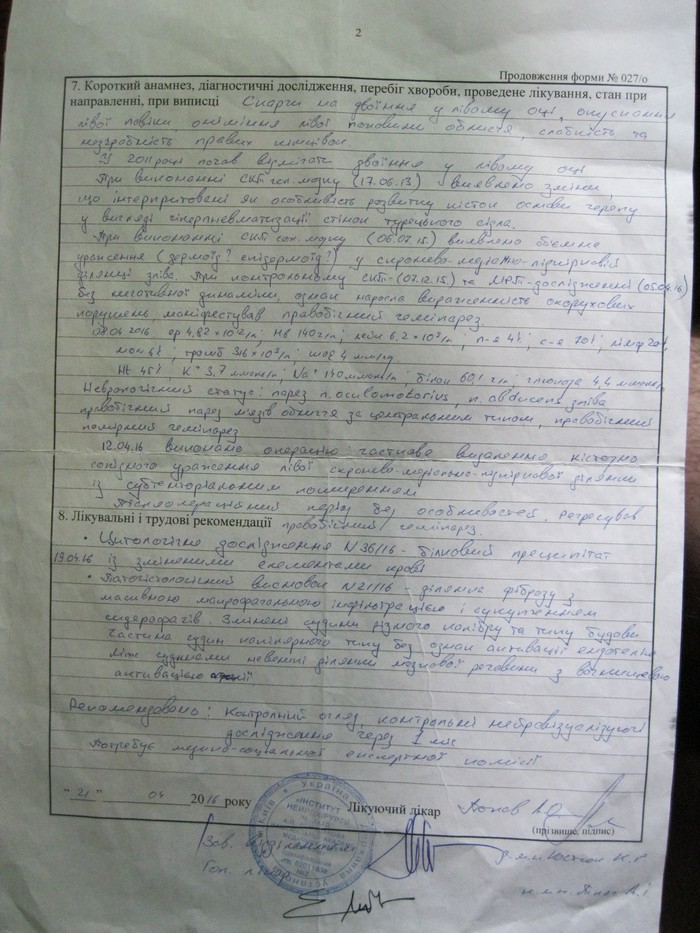 2
Продовження форми № 027/о
7. Короткий анамнез, діагностичні дослідження, перебіг хвороби, проведене лікування, стан при
направленні, при виписці Скарги на двоїння у лівому оці, опускання
лівої повіки, оніміння лівої половини обличчя, слабкість та
незграбність правих кінцівок.
У 2011 році почав відмічати двоїння у лівому оці
При виконанні СКТ гол. мозку (17.06.13) виявлено зміни,
що інтерпритовані як особливість розвитку кісток основи черепу
у вигляді гіперпневматизації стінок турецького сідла.
При виконанні СКТ гол. мозку (06.07.15) виявлено об'ємне
ураження (дермоїд? епідермоїд?) у скронево-медіально-підчерепній
ділянці зліва. При контрольному СКТ-(07.12.15) та МРТ-дослідженні (05.04.16)
без негативної динаміки, однак наросла вираженність окорухових
порушень, маніфестував правобічний геміпарез.
08.04.2016 ер 4,82 ; Hb 140 г/л; лейк 6,2 ; п-я 4%; с-я 70%; лімф 20%,
мон 6%; тромб 316 ; шое 4 мм/г
Ht 45% K⁺ 3,7 ммоль/л; Na⁺ 140 ммоль/л; білок 60,1 г/л; глюкоза 4,4 ммоль/л
Неврологічний статус: парез n. oculomotorius, n. abducens зліва,
правобічний парез м'язів обличчя за центральним типом, правобічний
помірний геміпарез
12.04.16 виконано операцію: часткове видалення кістозно
солідного ураження лівої скронево-медіально ділянки
із субтенторіальним поширенням
Післяопераційний період без особливостей. Регресував
8. Лікувальні і трудові рекомендації правобічний геміпарез.
• Цитологічне дослідження N 36/16 - білковий преципітат
19.04.16 із зміненими елементами крові
• Патогістологічний висновок N 21/16 - ділянки фіброзу з
масивною макрофагальною інфільтрацією і скупченням
сидерафагів. Змінені судини різного калібру та типу будови
Частина судин капілярного типу без ознак активації ендотелія
Між судинами невеликі ділянки мозкової речовини з вогнищевою
активацією глії
Рекомендовано: Контрольний огляд, контрольні нейровізуалізуючі
дослідження через 1 міс
Потребує медико-соціальної експертної комісії
" 21 " 04 2016 року
Лікуючий лікар
(прізвище, підпис)
Зав. відділенням
Україна
ІНСТИТУТ
НЕЙРОХІРУРГІЇ